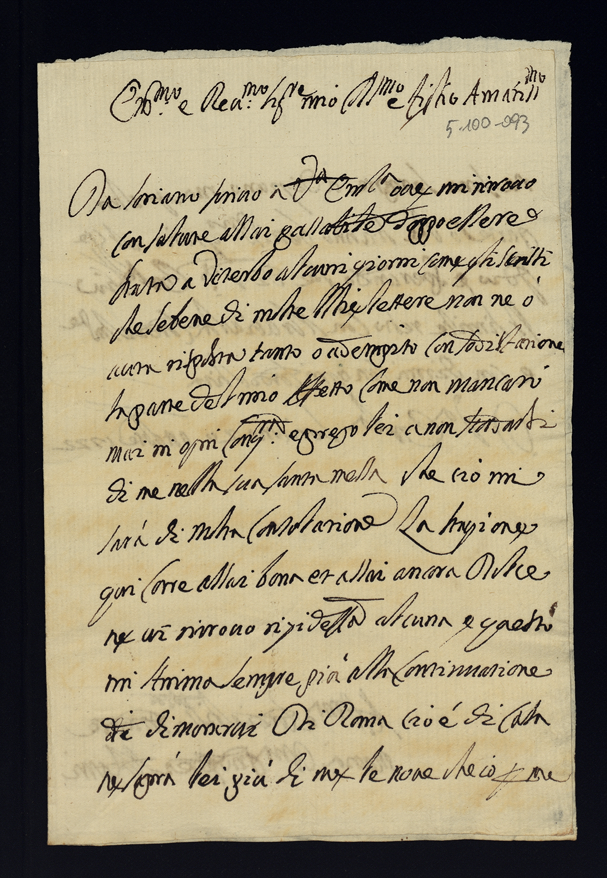 e Figlio Amatiss.mo
5-100-093
Da Soriano scrivo a V.a Em.za ove mi ritrovo
con salute assai passabile doppo essere
stata a Viterbo alcuni giorni
che sebene di molte Mie lettere non ne ò
auta risposta tanto o adempito con sodisfatione
la parte del mio affetto come non mancarò
mai in ogni e prego lei a non scordarsi
di me nella sua santa messa che ciò mi
sarà di molta consolatione La stagione
qui corre assai bona et assai ancora dolce
ne vi ritrovo rigidezza alcuna e questo
mi anima sempre più alla continuatione
di dimorarvi Di Roma ciò è di Casa
ne saprà lei più di me le nove che io p me